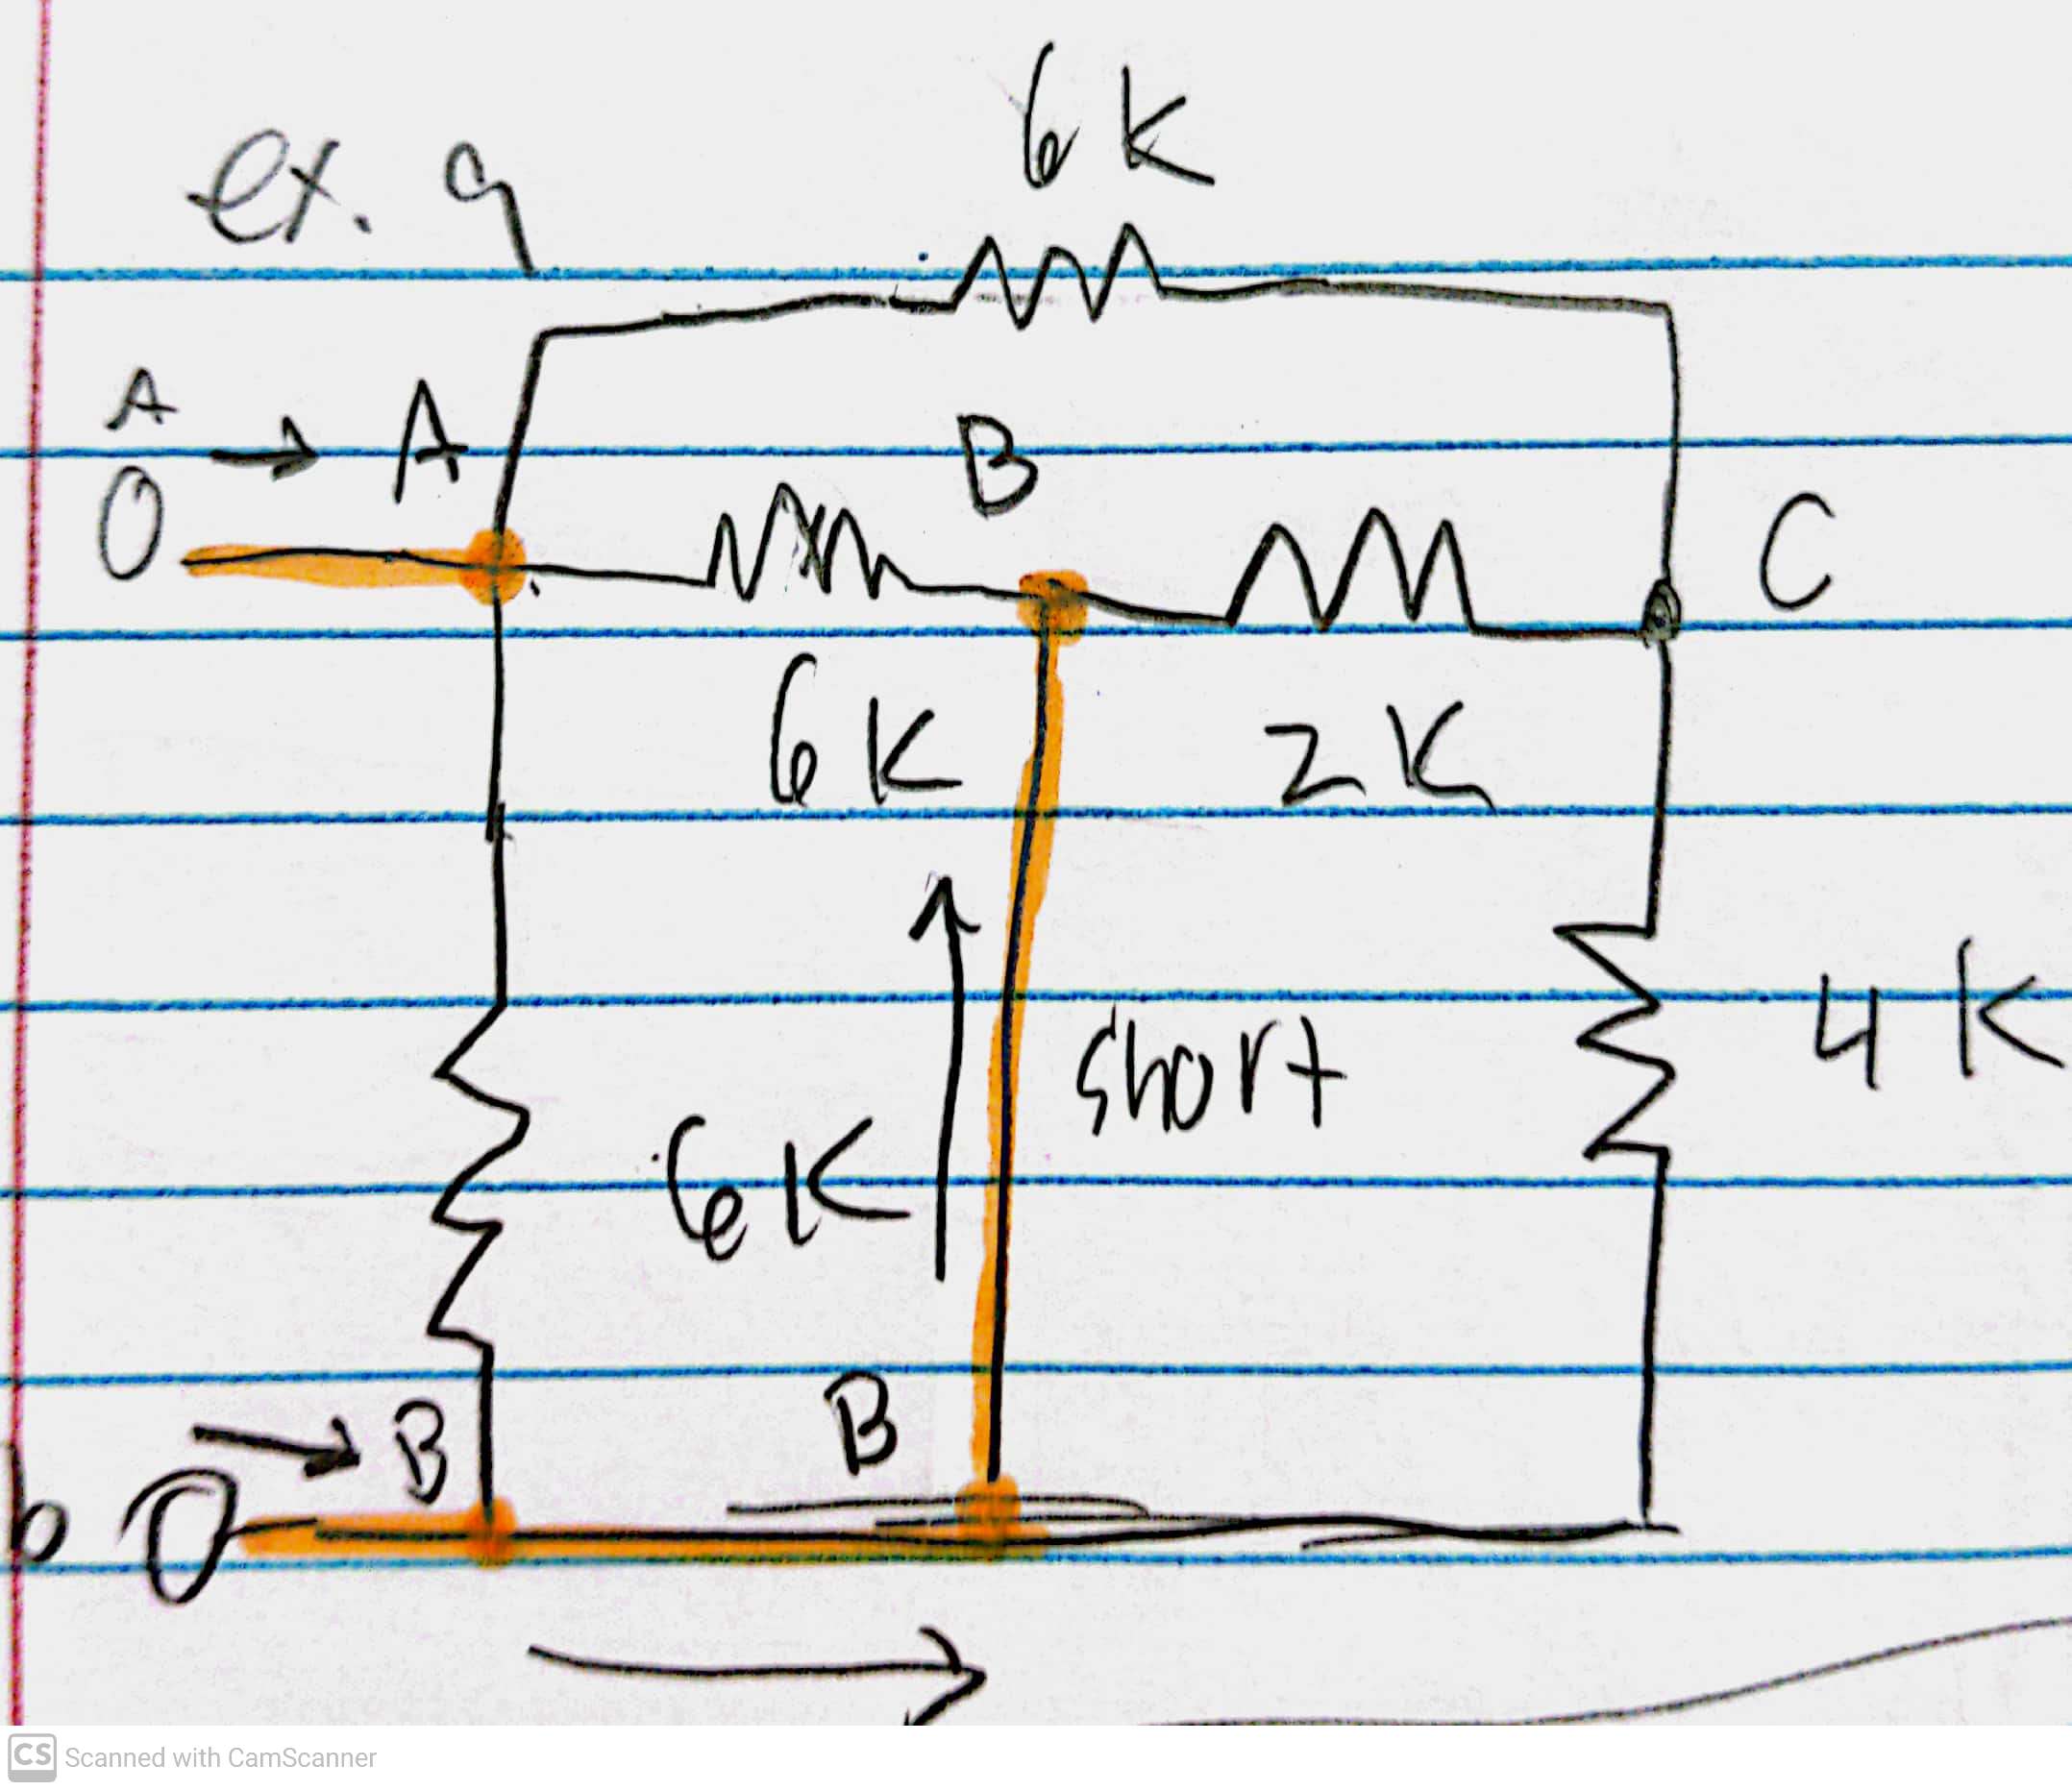 6K
ex. 9
A
→ A
B
O
C
6K
2K
short
4K
6K
→ B
B
b O
CS Scanned with CamScanner